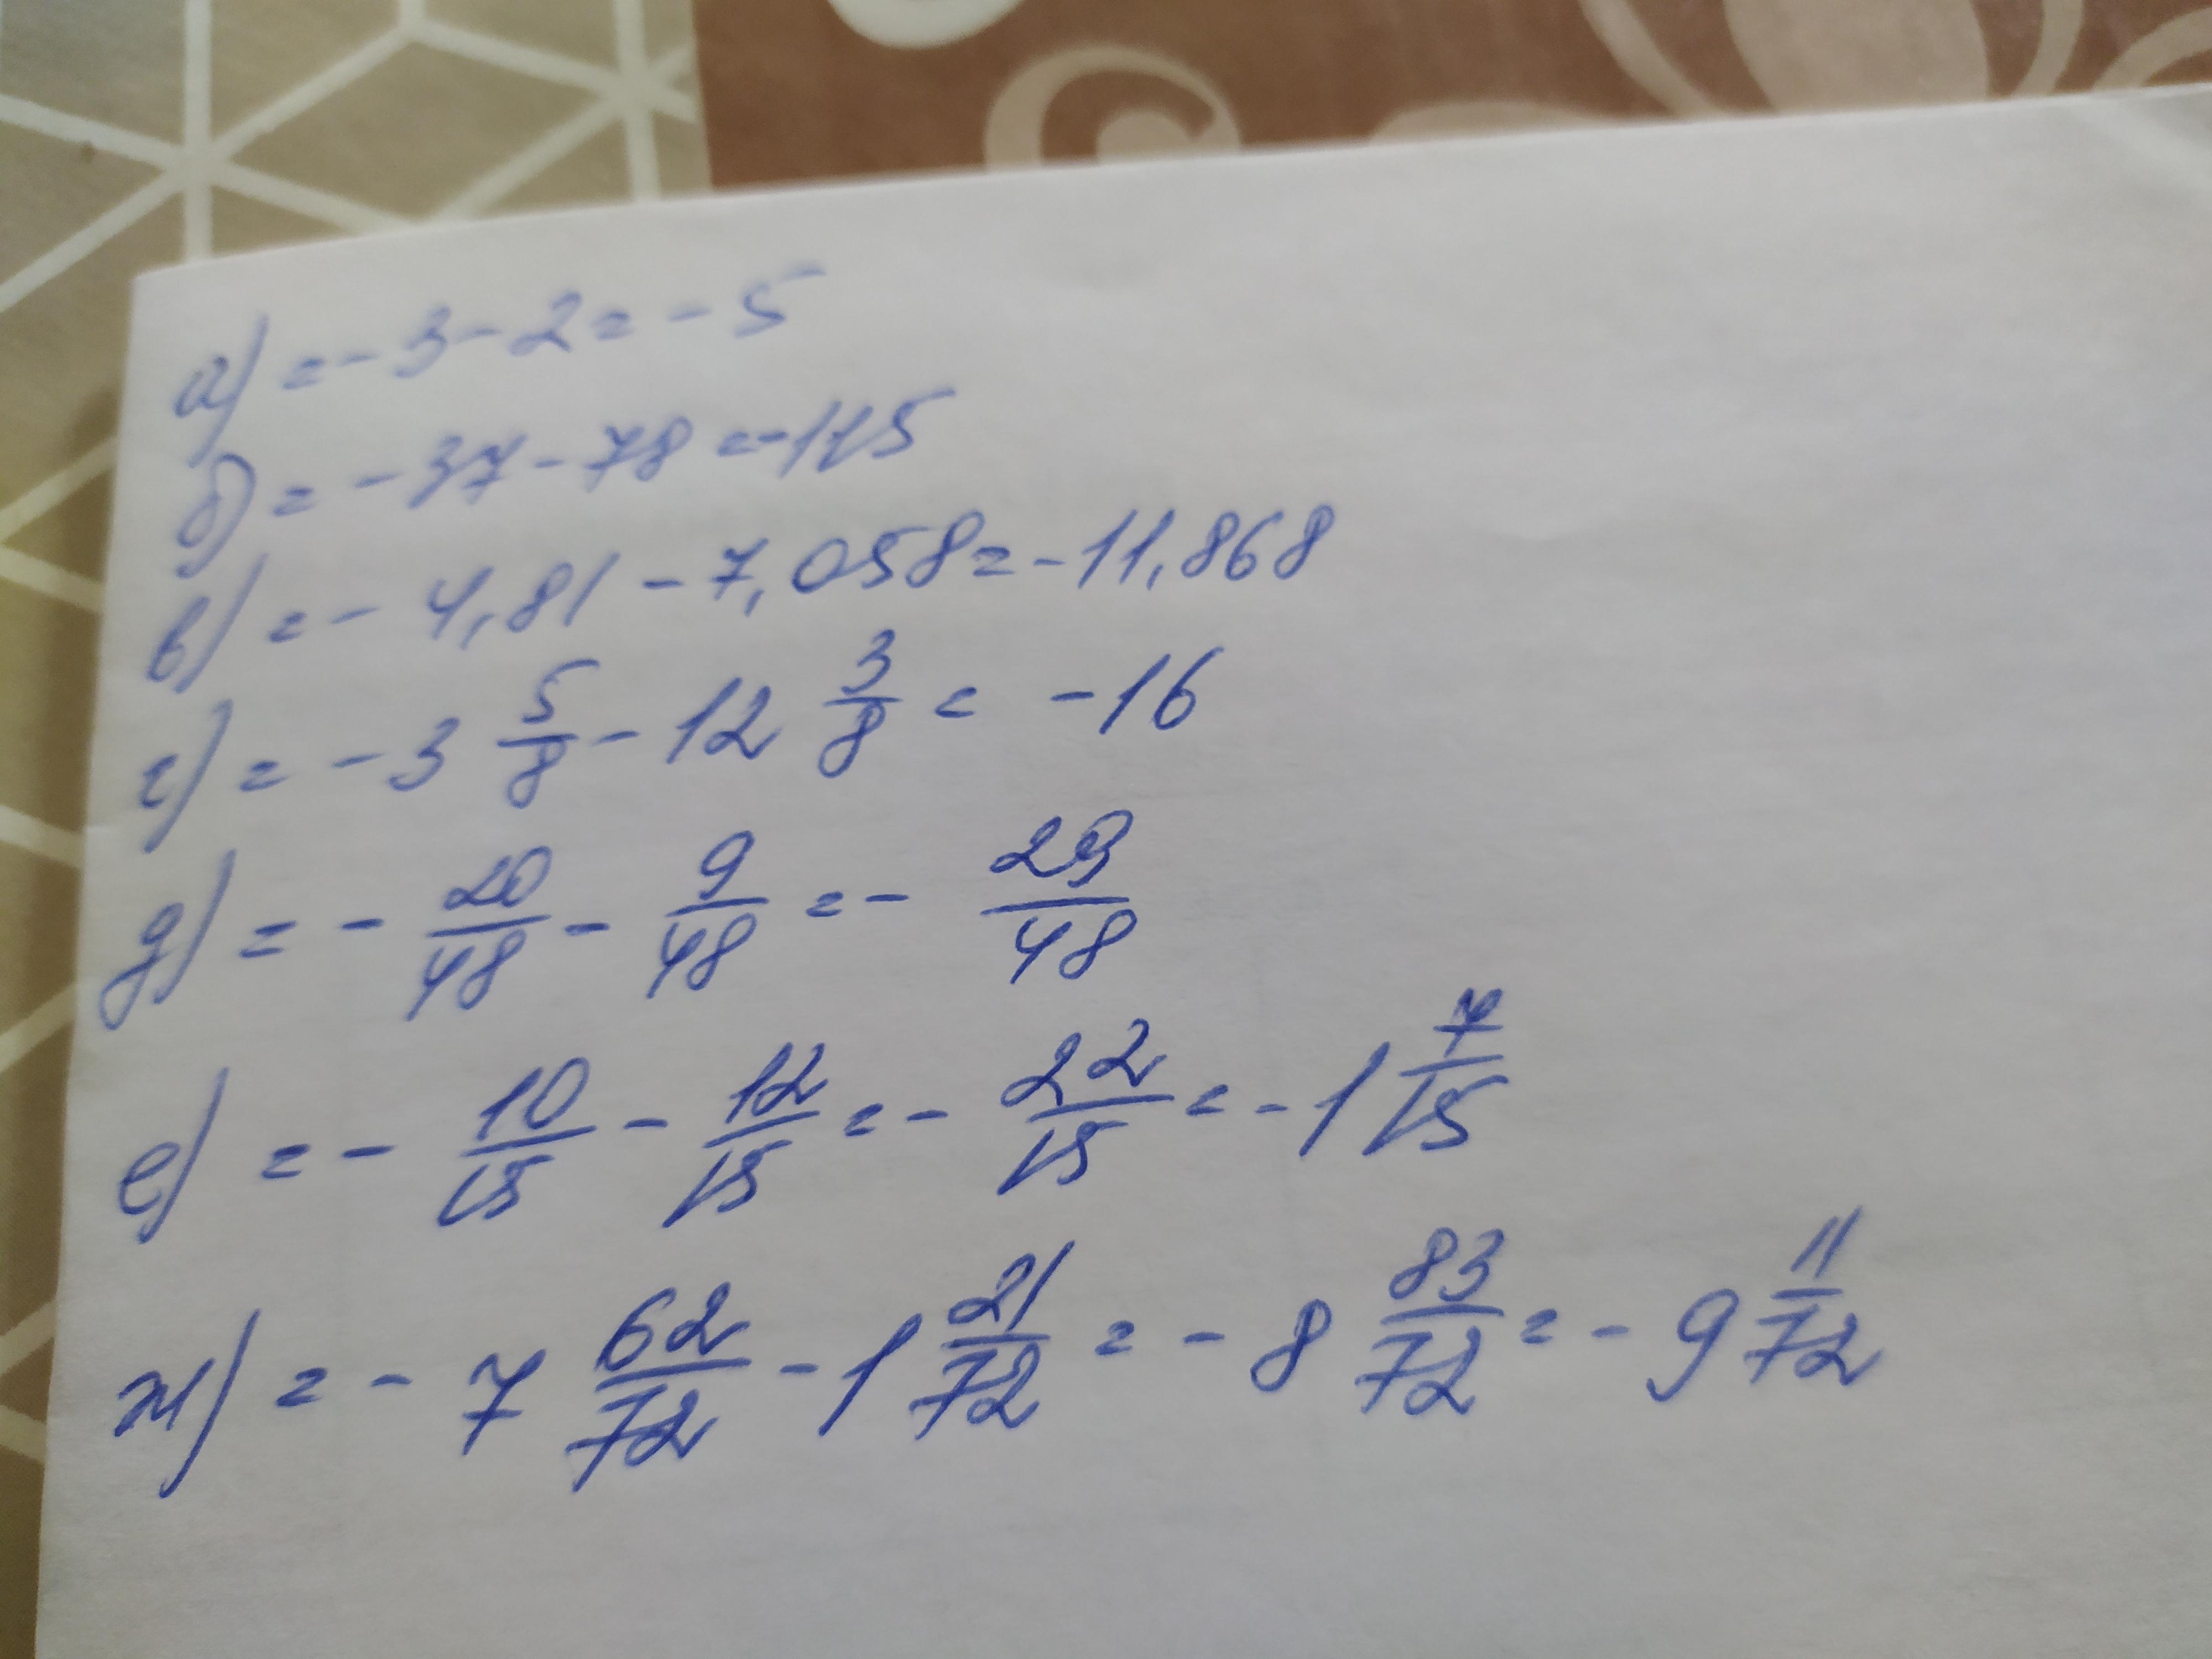 а) = - 3 - 2 = - 5
б) = - 37 - 78 = -115
в) = - 4,81 - 7,058 = - 11,868
г) = - 3 5/8 - 12 3/8 = - 16
д) = - 20/48 - 9/48 = - 29/48
е) = - 10/15 - 12/15 = - 22/15 = - 1 7/15
ж) = - 7 62/72 - 1 21/72 = - 8 83/72 = - 9 11/72